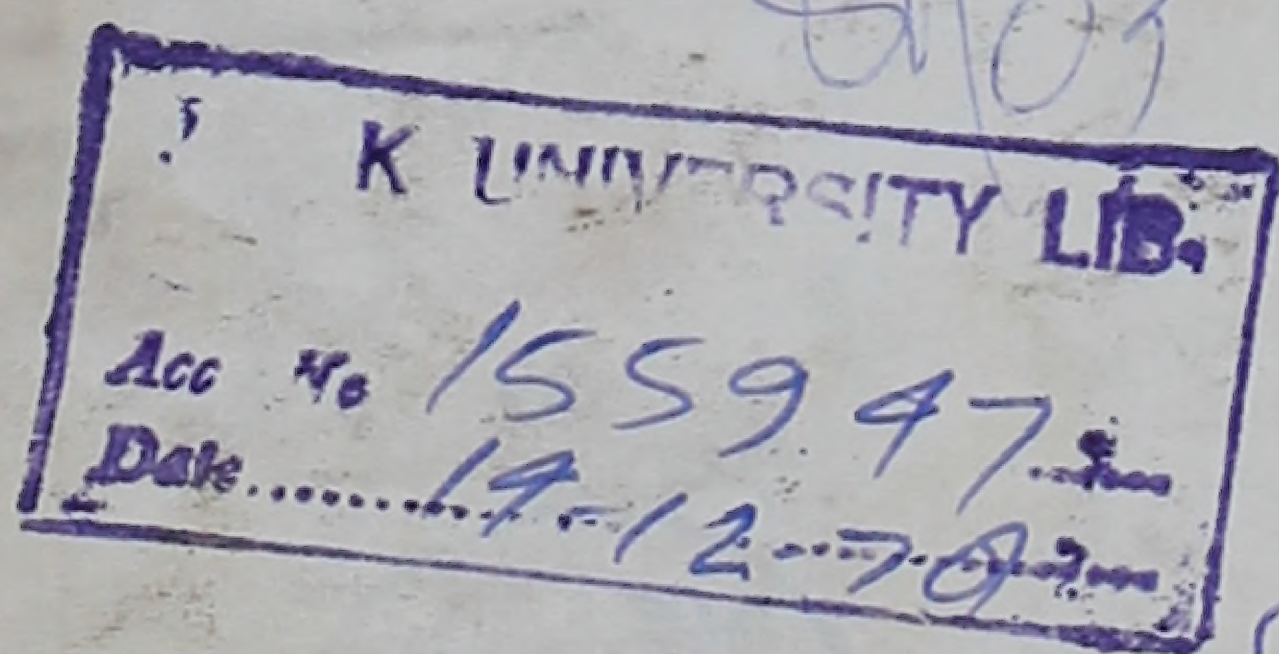 K UNIVERSITY LIB.
Acc No 155947
Date 14-12-70